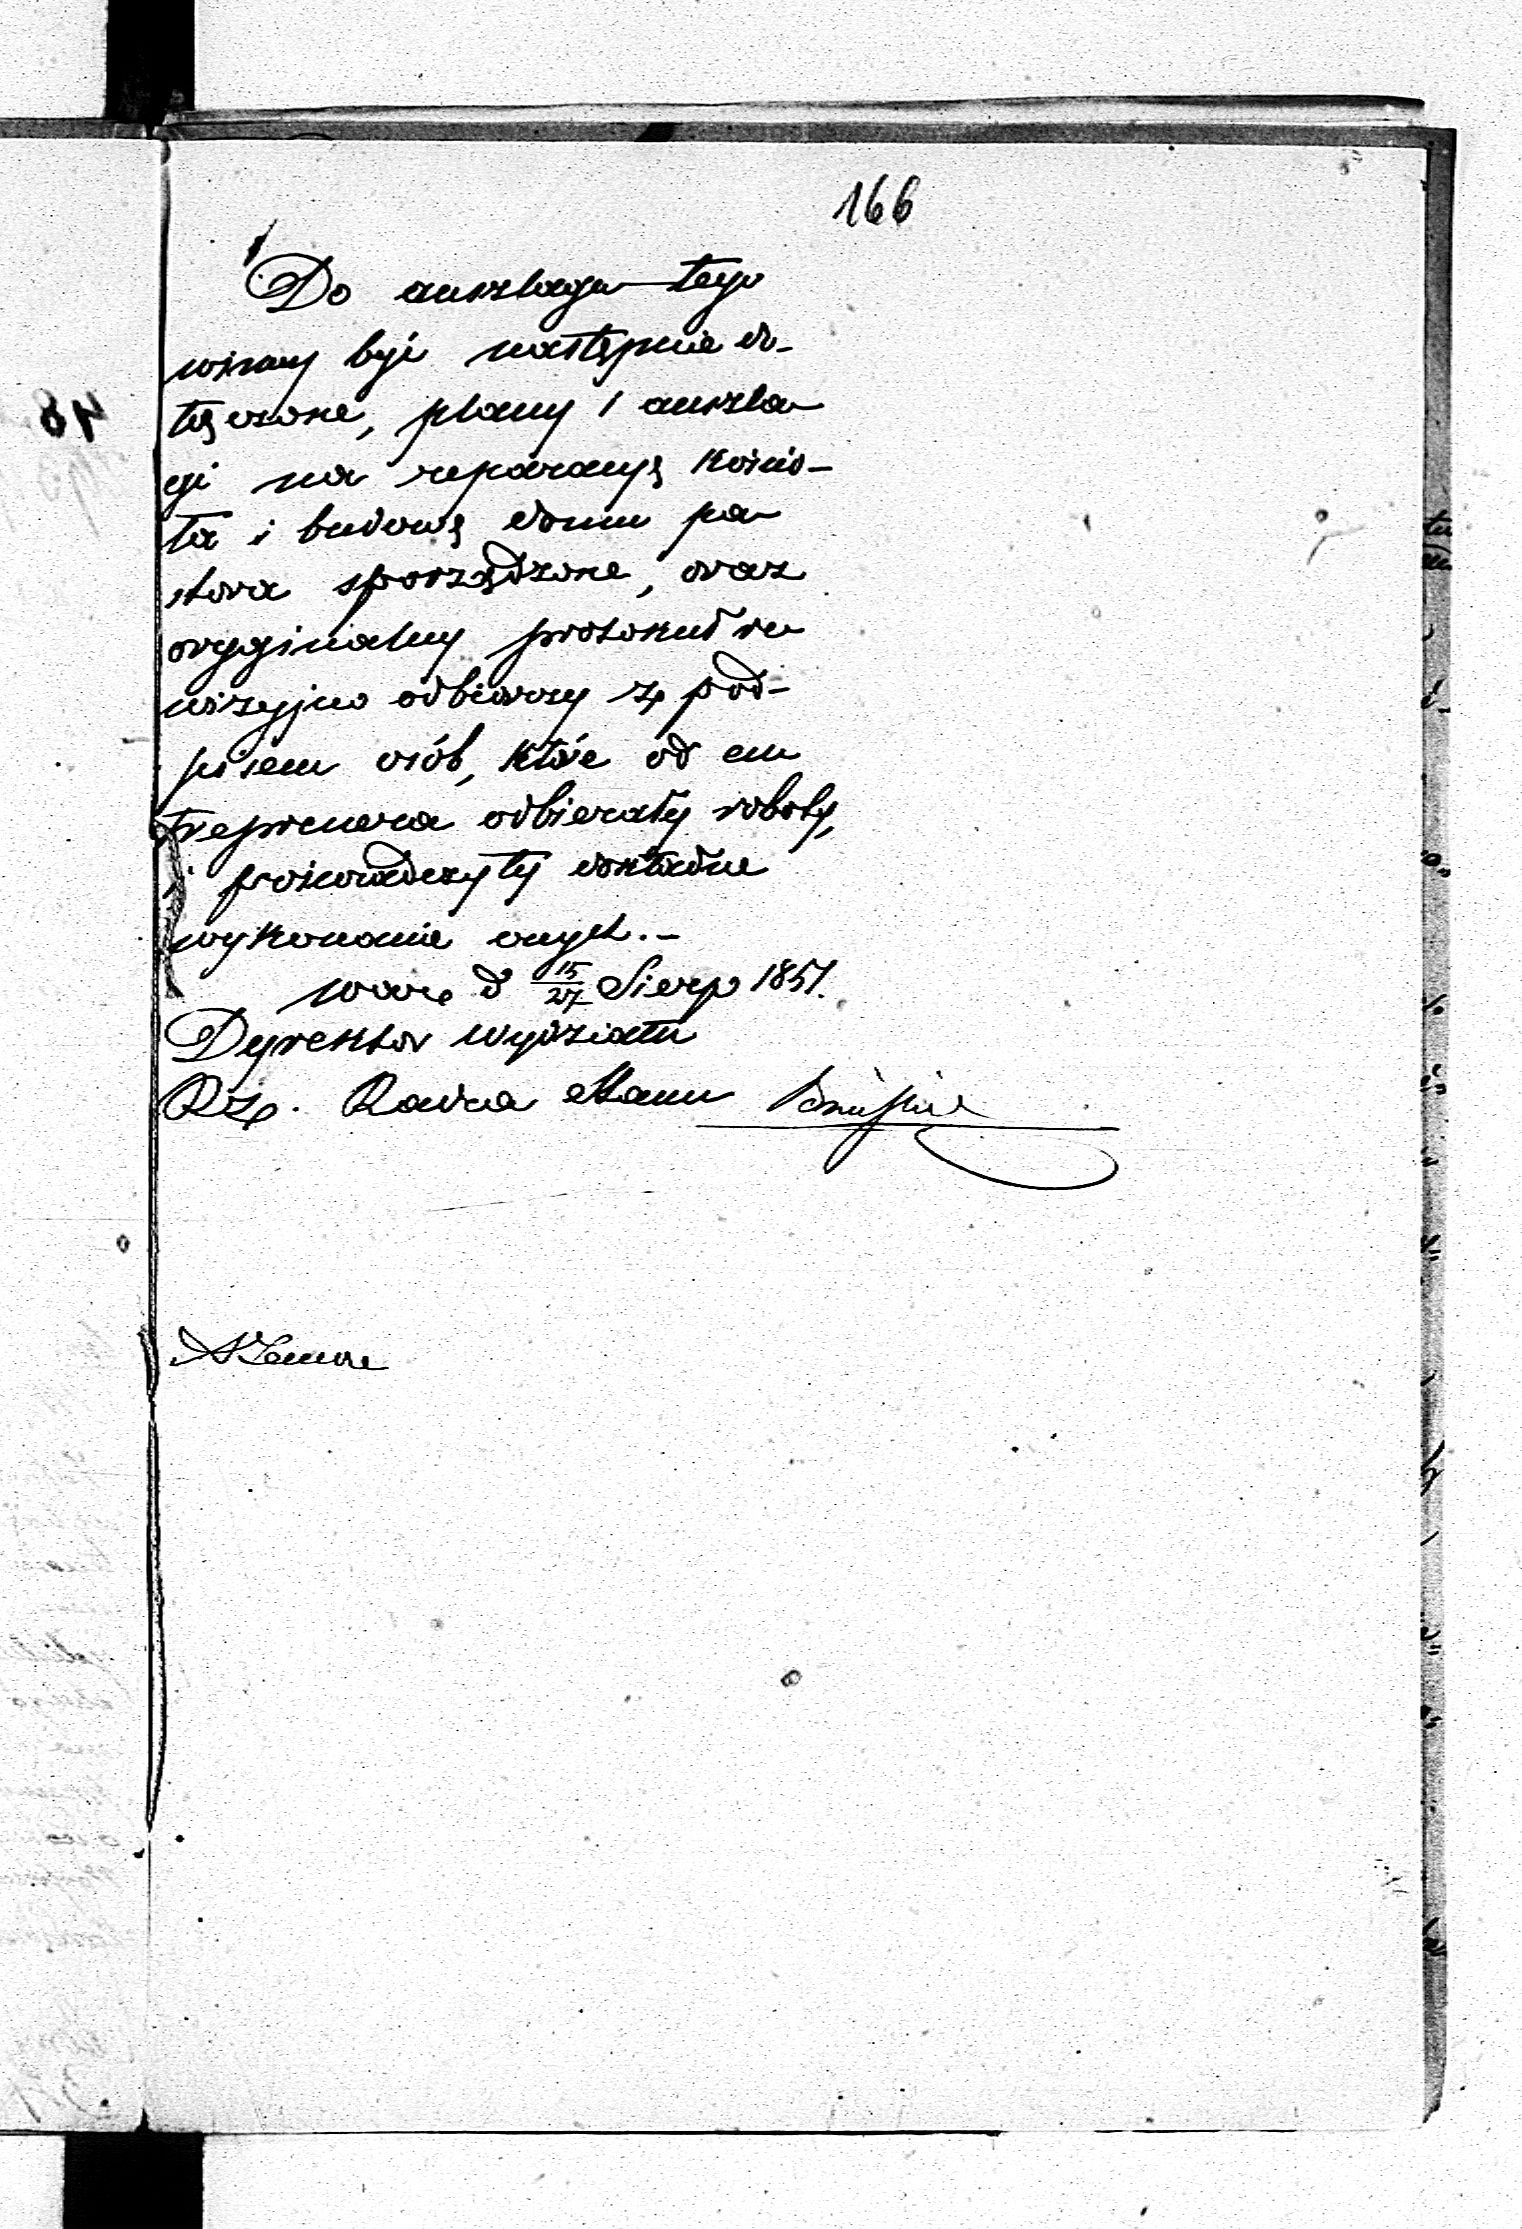 166
Do anszlagu tego
winny być następnie do-
łączone, plany i anszla
gi na reparacyą kościo-
ła i budowę domu pa
stora sporządzone, oraz
oryginalny protokuł re
wizyjno odbiorczy z pod-
pisem osób, które od en
treprenera odbierały roboty,
i poświadczyły dokładne
wykonanie onych.-
Warz d 15/27 Sierp 1851.
Dyrektor Wydziału
Rz. Radca Stanu